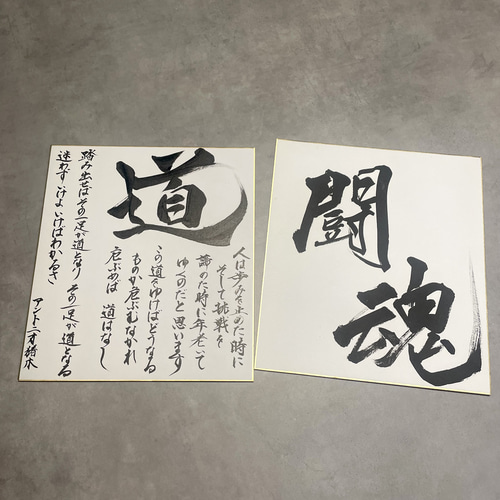 道
人は歩みを止めた時に
そして挑戦を
諦めた時に年老いて
ゆくのだと思います
この道をゆけばどうなる
ものか危ぶむなかれ
危ぶめば 道はなし
踏み出せばその一足が道となり その一足が道となる
迷わずいけよ いけばわかるさ
アントニオ猪木
闘
魂